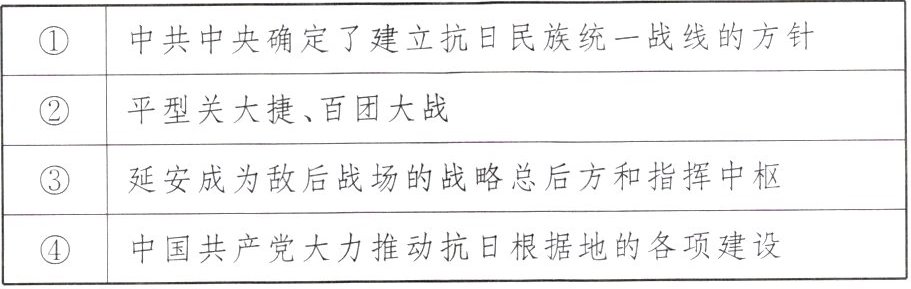 ① 中共中央确定了建立抗日民族统一战线的方针
② 平型关大捷、百团大战
③ 延安成为敌后战场的战略总后方和指挥中枢
④ 中国共产党大力推动抗日根据地的各项建设